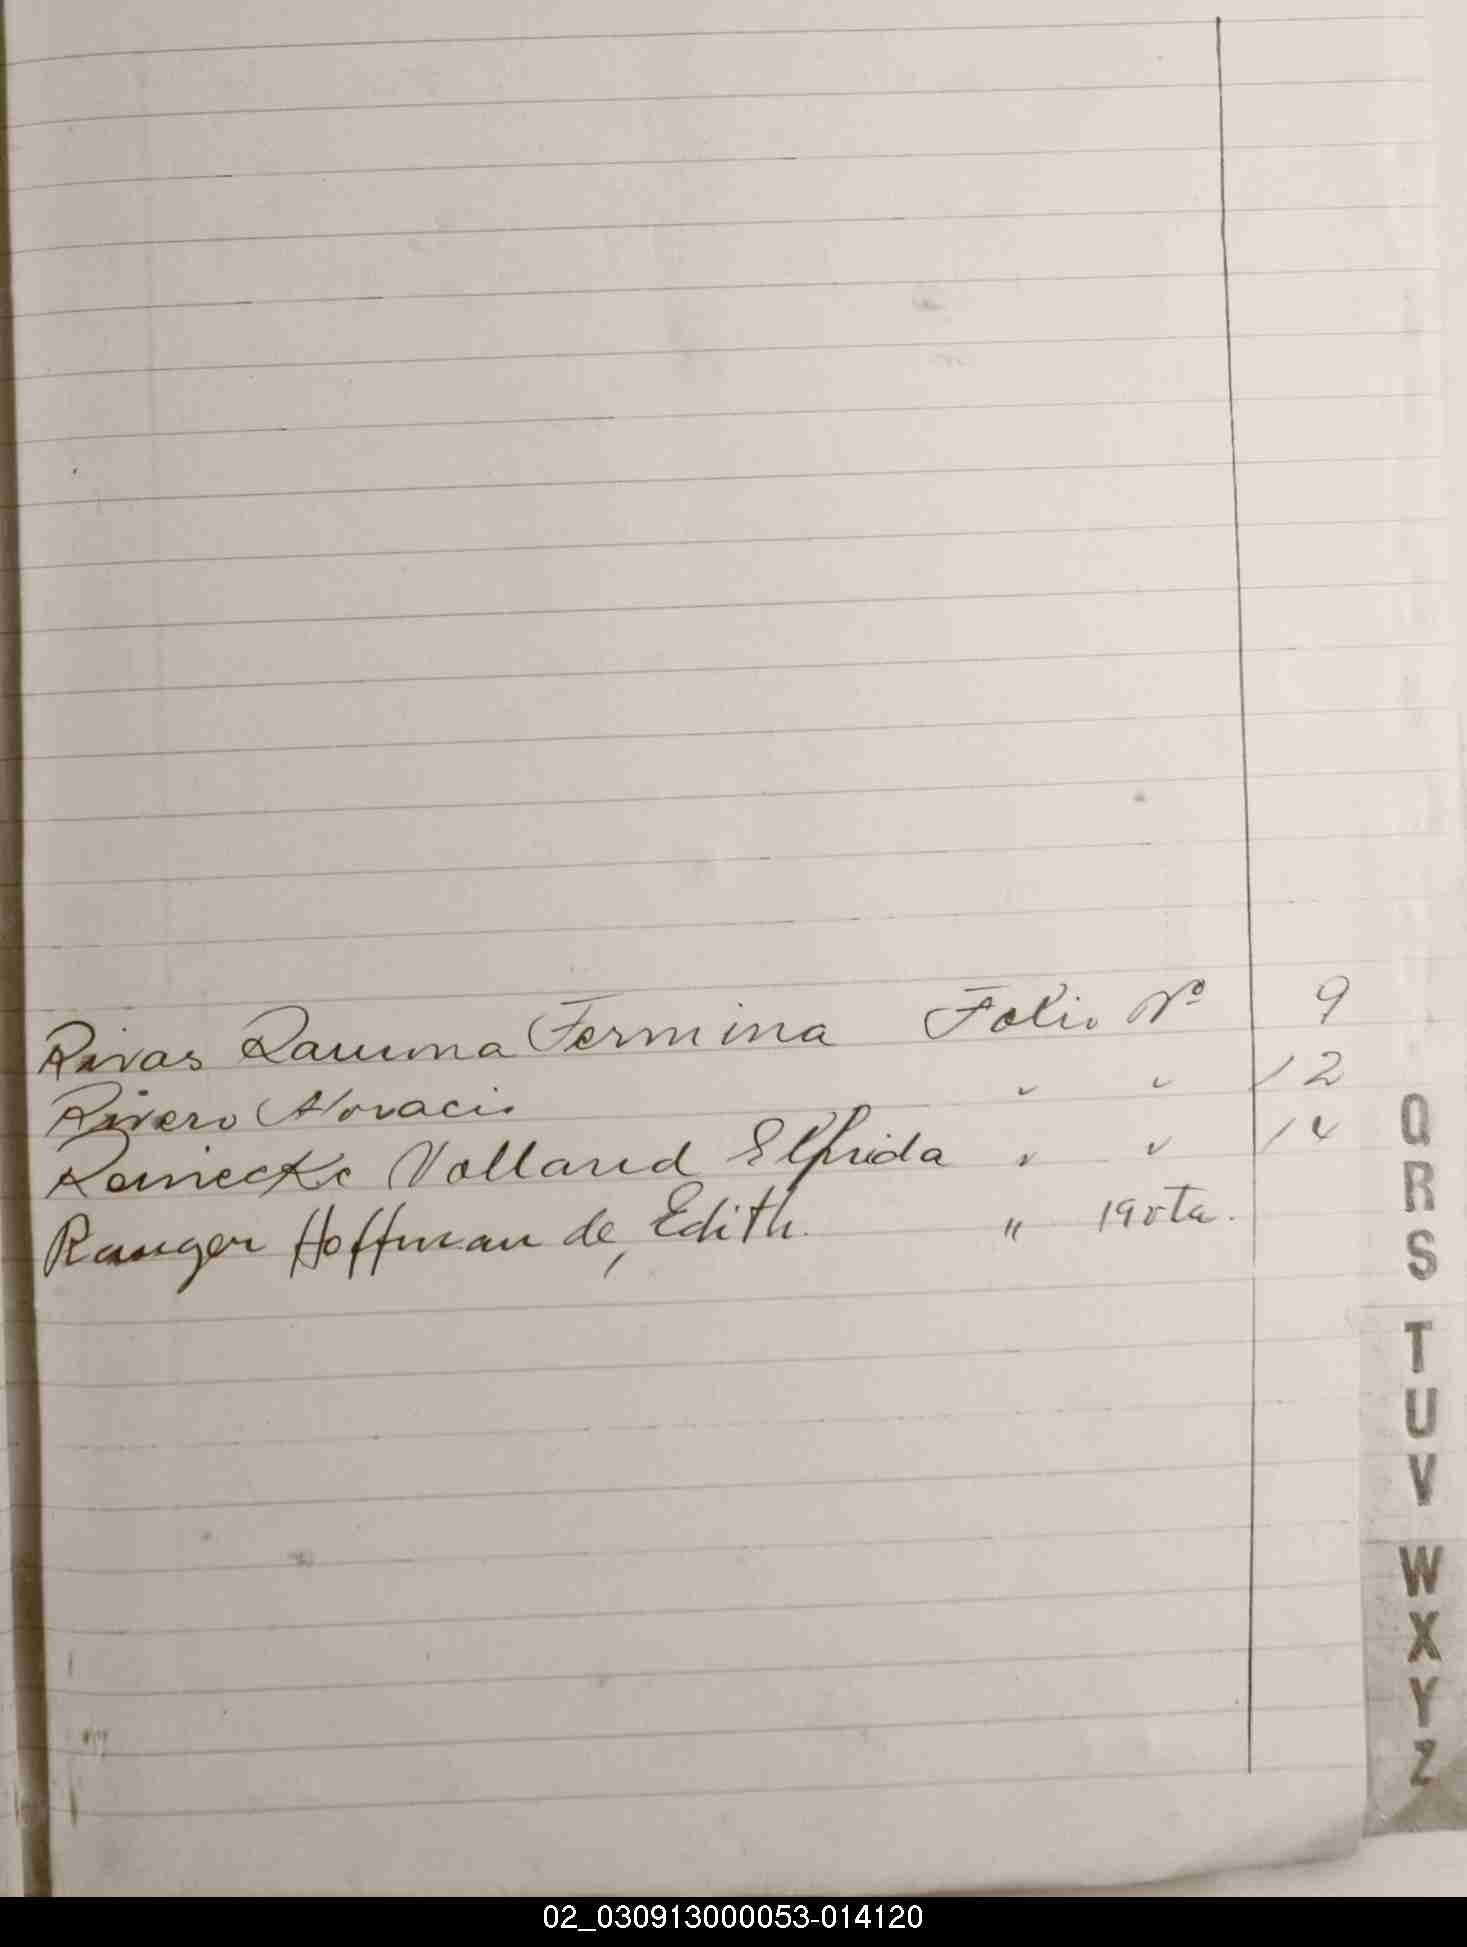 Rivas Ramona Fermina Folio Nº 9
Rivero Horacio " " 12
Reinecke Volland Elfrida " " 14
Ranger Hoffman de, Edith. " 19 vta.
Q
R
S
T
U
V
W
X
Y
Z
02_030913000053-014120